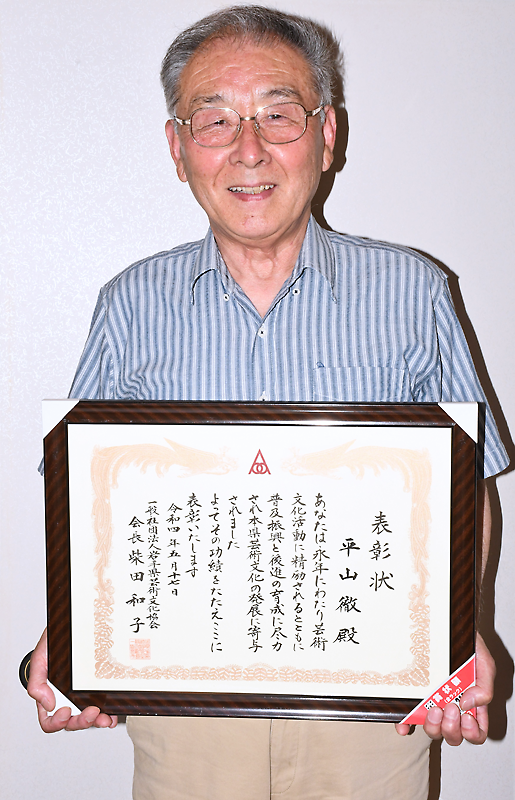 表彰状
平山徹殿
あなたは永年にわたり芸術
文化活動に精励されるとともに
普及振興と後進の育成に尽力
され本県芸術文化の発展に寄与
されました
よってその功績をたたえここに
表彰いたします
令和四年五月十七日
一般社団法人岩手県芸術文化協会
会長 柴田和子
賞状額